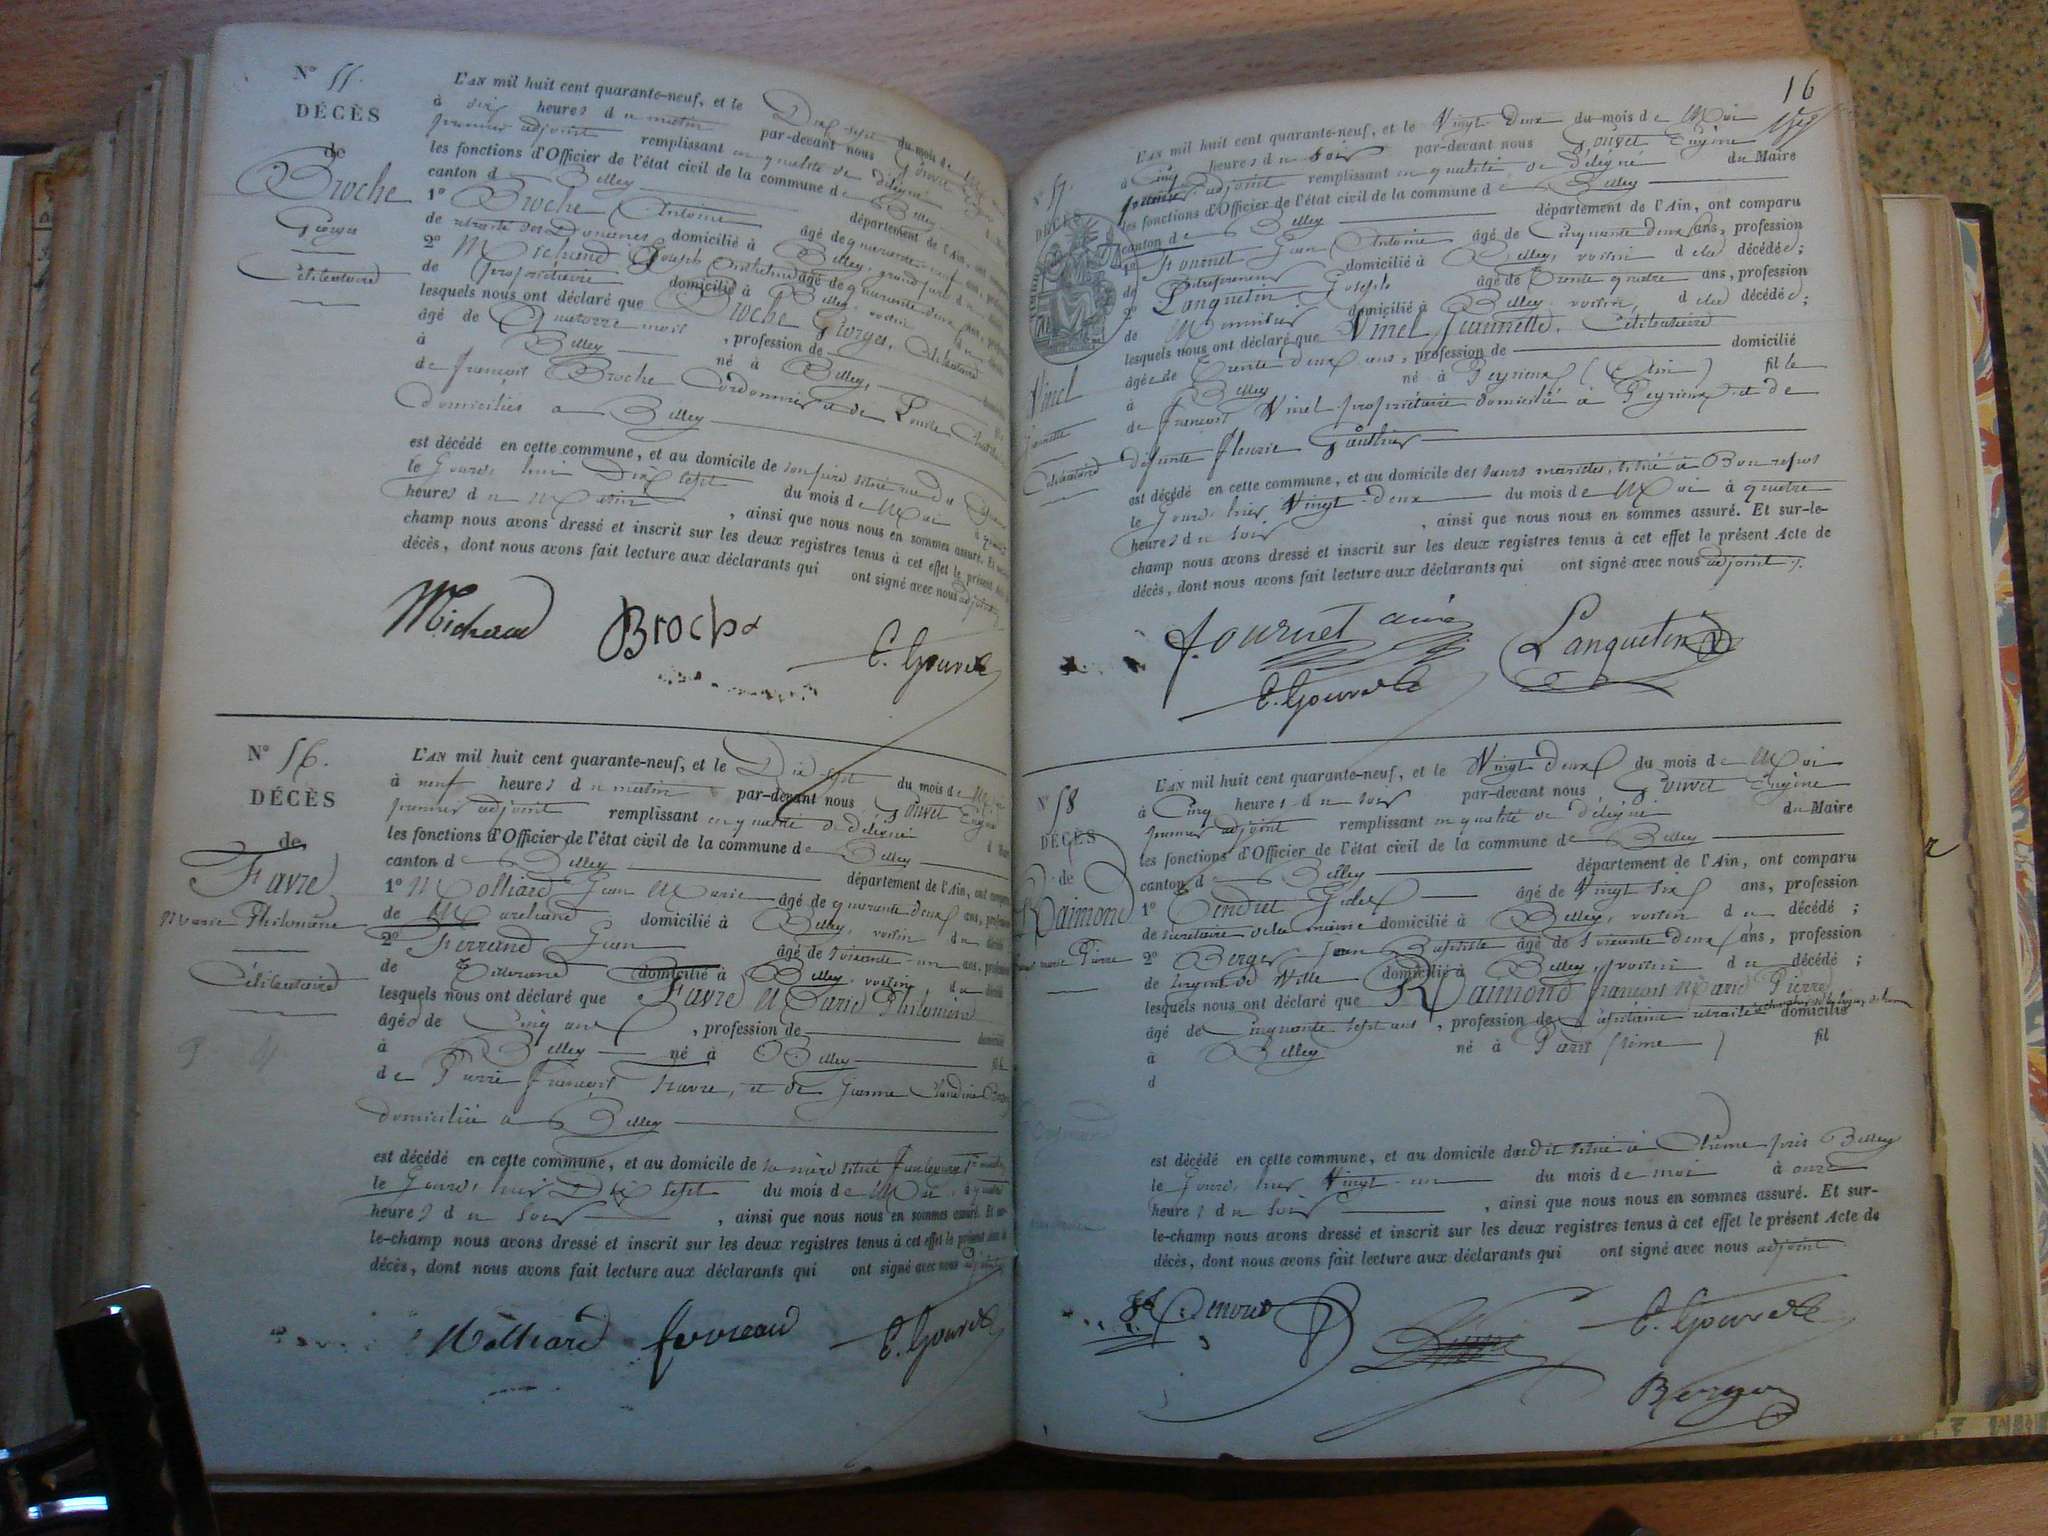 N° 55.
DÉCÈS
de
Broche
Georges
Célibataire
L'AN mil huit cent quarante-neuf, et le Dix sept du mois de
à dix heures du matin par-devant nous Gouvet
premier adjoint remplissant en qualité de délégué
les fonctions d'Officier de l'état civil de la commune de Belley
canton de Belley département de l'Ain, ont
1° Broche Antoine âgé de quarante neuf ans,
de retraité des Douanes domicilié à Belley, grand père du
2° Michaud Joseph Anthelme âgé de quarante deux ans,
de propriétaire domicilié à Belley, voisin du
lesquels nous ont déclaré que Broche Georges, Célibataire
âgé de Quatorze mois, profession de
à Belley né à Belley,
de françois Broche Cordonnier et de Louise
domiciliés à Belley
est décédé en cette commune, et au domicile de son père situé rue du
le jourd'hui Dix sept du mois de Mai à
heures du Matin, ainsi que nous nous en sommes assuré. Et
champ nous avons dressé et inscrit sur les deux registres tenus à cet effet le présent
décès, dont nous avons fait lecture aux déclarants qui ont signé avec nous adjoint
Michaud Broche
E. Gouvet
N° 56.
DÉCÈS
de
Favre
Marie Philomène
Célibataire
L'AN mil huit cent quarante-neuf, et le Dix sept du mois de Mai
à neuf heures du matin par-devant nous Gouvet Eugène
premier adjoint remplissant en qualité de délégué
les fonctions d'Officier de l'état civil de la commune de Belley
canton de Belley département de l'Ain, ont
1° Molliard Jean Marie âgé de quarante deux ans,
de Marchand domicilié à Belley, voisin du
2° Ferrand Jean âgé de soixante-un ans,
de domicilié à Belley, voisin du
lesquels nous ont déclaré que Favre Marie Philomène
âgée de Cinq ans, profession de
à Belley né à Belley
de Pierre François Favre, et de Jeanne Claudine
domiciliée à Belley
est décédé en cette commune, et au domicile de sa mère situé
le jourd'hier Dix sept du mois de Mai, à quatre
heures du soir, ainsi que nous nous en sommes assuré. Et sur-
le-champ nous avons dressé et inscrit sur les deux registres tenus à cet effet le présent
décès, dont nous avons fait lecture aux déclarants qui ont signé avec nous adjoint
Molliard ferrand E. Gouvet
16
N° 57.
DÉCÈS
Vinel
Jeannette
Célibataire
L'AN mil huit cent quarante-neuf, et le Vingt Deux du mois de Mai
à Cinq heures du soir par-devant nous Gouvet Eugène
premier adjoint remplissant en qualité de délégué du Maire
les fonctions d'Officier de l'état civil de la commune de Belley
canton de Belley département de l'Ain, ont comparu
1° Fournet Jean Antoine âgé de Cinquante deux ans, profession
de Entrepreneur domicilié à Belley, voisin de la décédée;
2° Lanquetin Joseph âgé de trente quatre ans, profession
de Menuisier domicilié à Belley voisin, de la décédée;
lesquels nous ont déclaré que Vinel Jeannette, Célibataire
âgée de trente deux ans, profession de domicilié
à Belley né à Peyrieux (Ain) fille
de françois Vinel propriétaire domicilié à Peyrieux et de
défunte fleurie Gauthier
est décédé en cette commune, et au domicile des sœurs maristes, situé à Bon repos
le jourd'hui Vingt-deux du mois de Mai à quatre
heures du soir, ainsi que nous nous en sommes assuré. Et sur-le-
champ nous avons dressé et inscrit sur les deux registres tenus à cet effet le présent Acte de
décès, dont nous avons fait lecture aux déclarants qui ont signé avec nous adjoint.
fournet ainé Lanquetin
E. Gouvet
N° 58
DÉCÈS
de
Raimond
marie Pierre
L'AN mil huit cent quarante-neuf, et le Vingt deux du mois de Mai
à Cinq heures du soir par-devant nous Gouvet Eugène
premier adjoint remplissant en qualité de délégué du Maire
les fonctions d'Officier de l'état civil de la commune de Belley
canton de Belley département de l'Ain, ont comparu
1° Fidel âgé de Vingt six ans, profession
de secretaire de la mairie domicilié à Belley, voisin du décédé;
2° Berger Jean Baptiste âgé de soixante deux ans, profession
de sergent de Ville domicilié à Belley, voisin du décédé;
lesquels nous ont déclaré que Raimond françois Marie Pierre
âgé de Cinquante sept ans, profession de Capitaine retraité domicilié
à Belley né à Paris (Seine) fil
d
est décédé en cette commune, et au domicile dudit situé à près Belley
le jourd'hier Vingt-un du mois de mai à onze
heures du soir, ainsi que nous nous en sommes assuré. Et sur-
le-champ nous avons dressé et inscrit sur les deux registres tenus à cet effet le présent Acte de
décès, dont nous avons fait lecture aux déclarants qui ont signé avec nous adjoint.
E. Gouvet
Berger